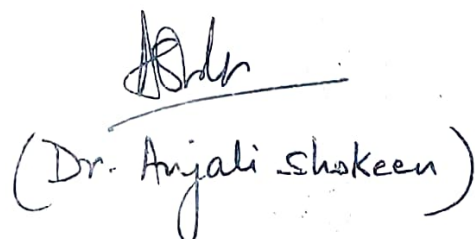 (Dr. Anjali Shokeen)